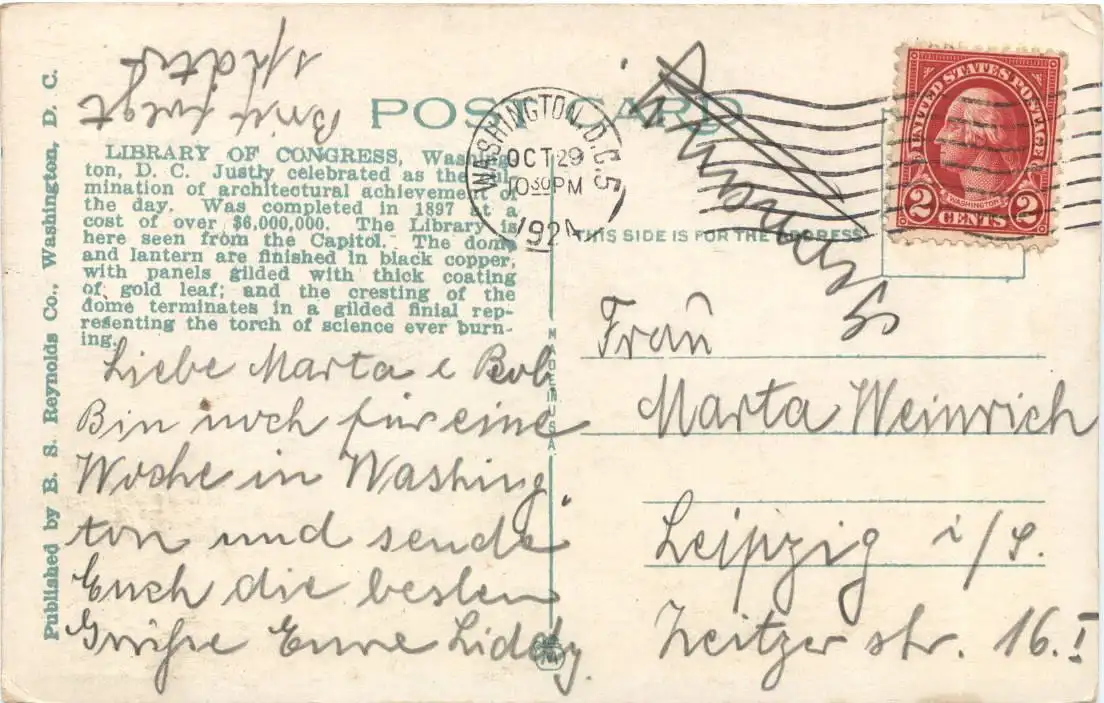 POST CARD
WASHINGTON, D.C. 5
OCT 29
10 30 PM
192
UNITED STATES POSTAGE
WASHINGTON
2 CENTS 2
THIS SIDE IS FOR THE ADDRESS
LIBRARY OF CONGRESS, Washing-
ton, D. C. Justly celebrated as the cul-
mination of architectural achievement of
the day. Was completed in 1897 at a
cost of over $6,000,000. The Library is
here seen from the Capitol. The dome
and lantern are finished in black copper,
with panels gilded with thick coating
of gold leaf; and the cresting of the
dome terminates in a gilded finial rep-
resenting the torch of science ever burn-
ing.
Liebe Marta e Bob
Bin noch für eine
Woche in Washing
ton und sende
Euch die besten
Grüsse Eure
Brief folgt
später
Frau
Marta Weinrich
Leipzig i/S.
Zeitzer str. 16.I
MADE IN U.S.A.
Published by B. S. Reynolds Co., Washington, D. C.